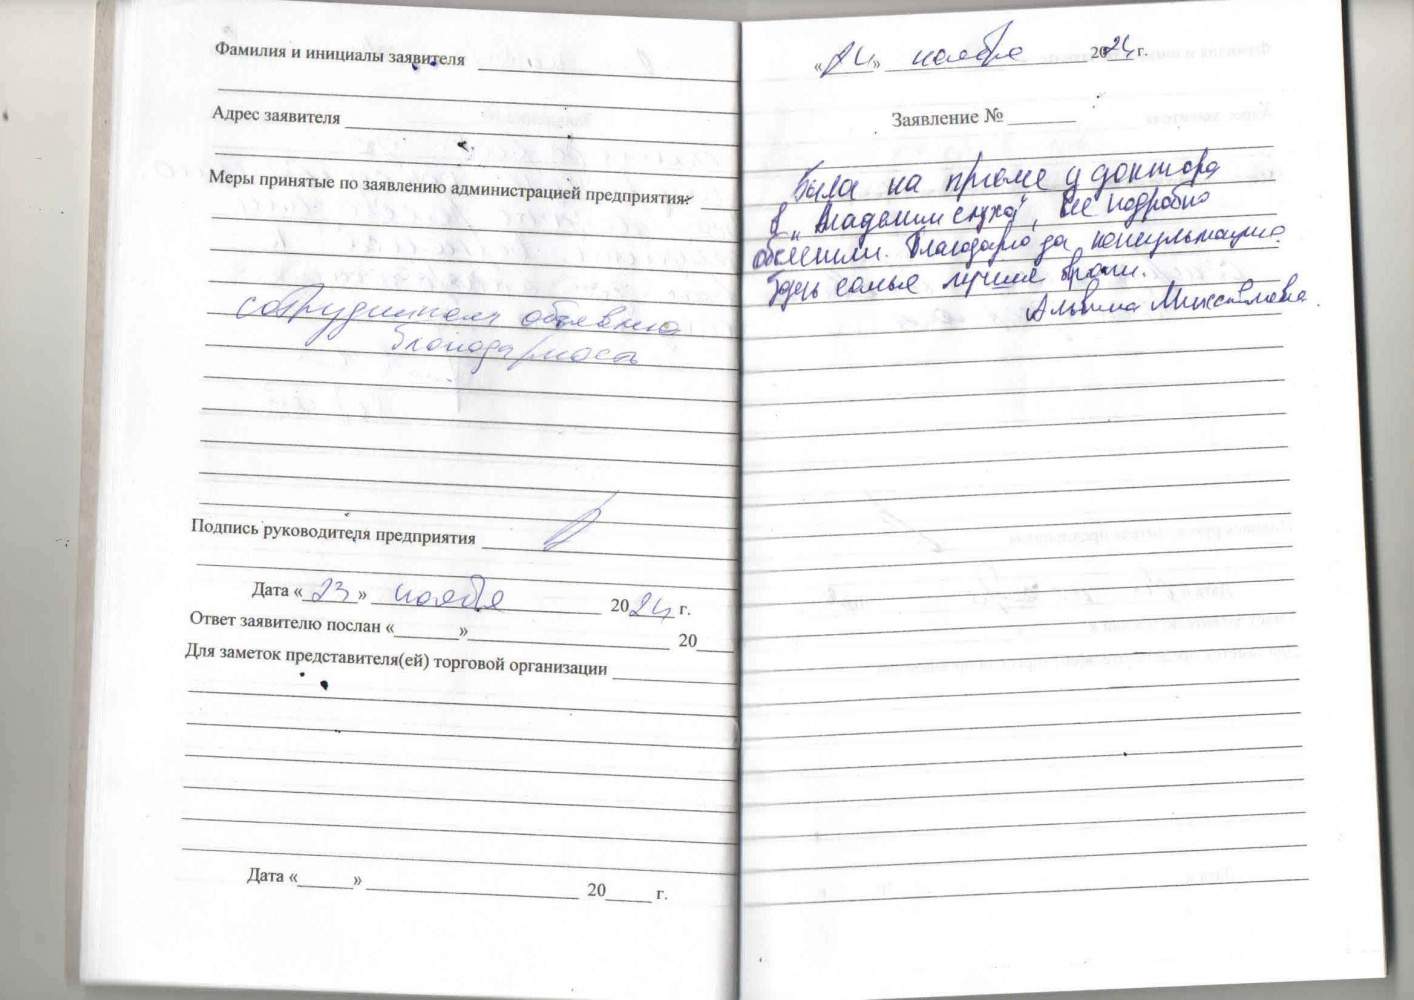 Фамилия и инициалы заявителя
Адрес заявителя
Меры принятые по заявлению администрацией предприятия
сотрудникам объявлена
благодарность
Подпись руководителя предприятия
Дата «23» ноября 2024 г.
Ответ заявителю послан «      » 20
Для заметок представителя(ей) торговой организации
Дата «      » 20      г.
«24» ноября 2024 г.
Заявление №
Была на приеме у доктора
в "Академии слуха", все подробно
объяснили. Благодарю за консультацию.
Здесь самые лучшие врачи.
Альбина